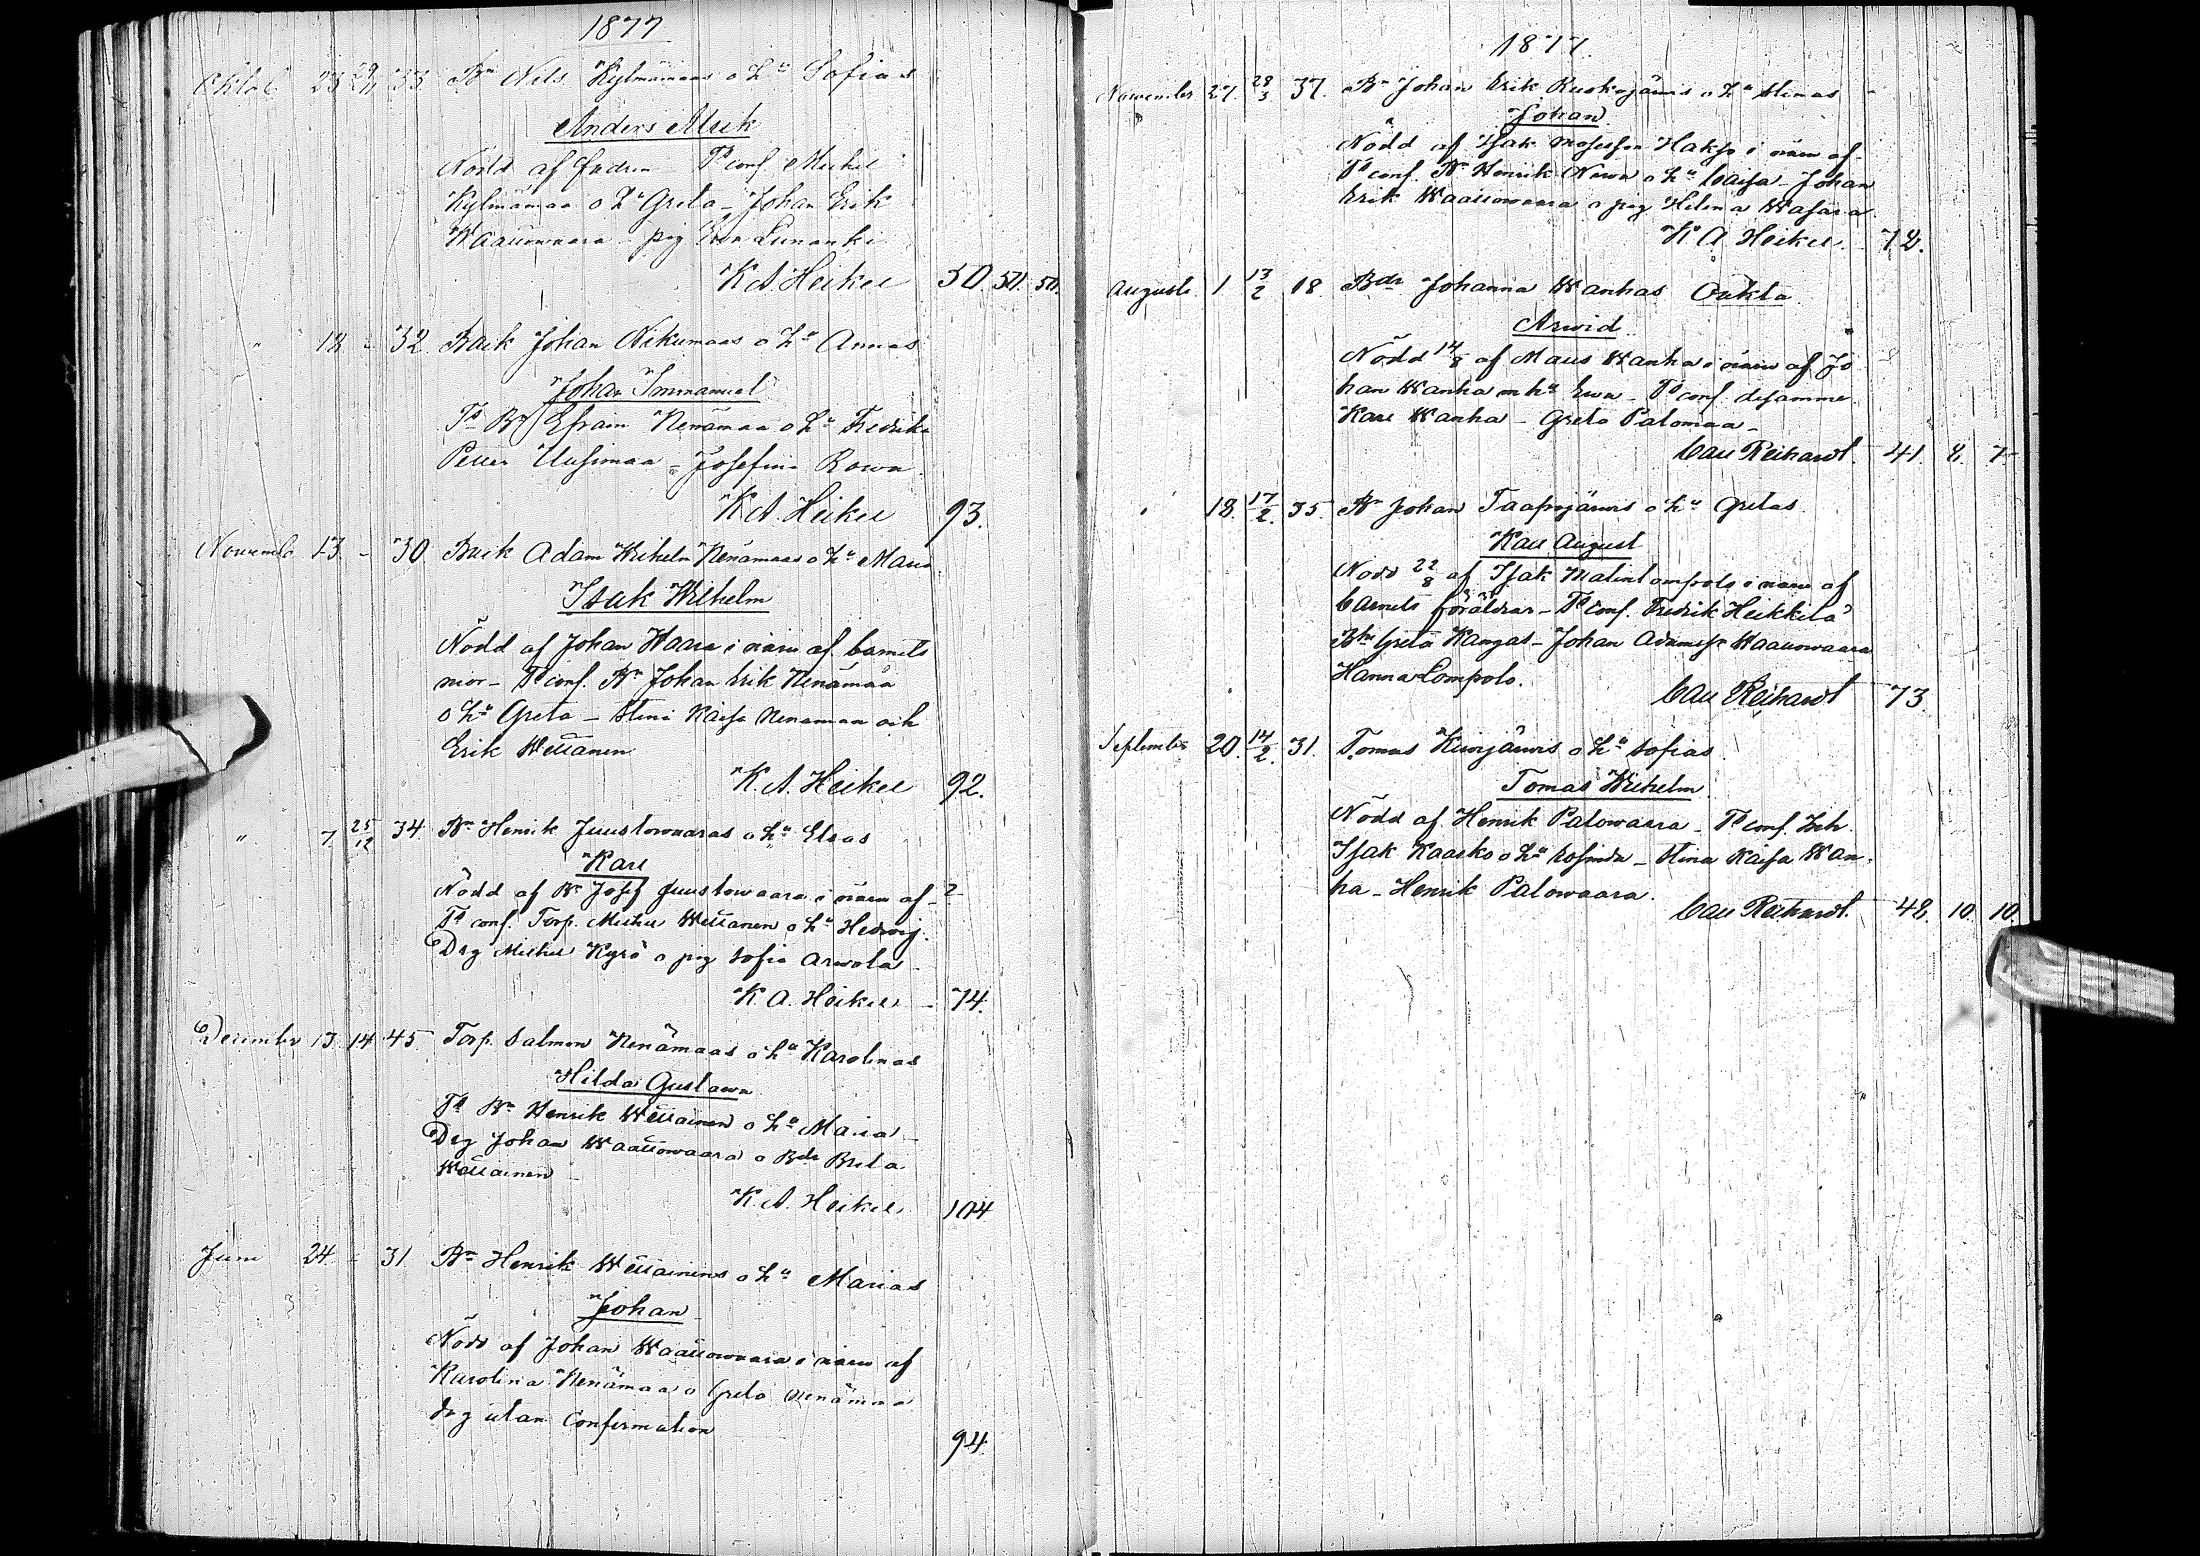 1877
Oktob 23 29/11 33 Bn Nils Kylmämaas o hu Sofias
Anders Alrik
Nödd af fadren – Ts conf. Mickel
Kylmämaa o hu Greta – Johan Erik
Waaliowaara – pig Ewa Lunanki
K A Heikel 50. 50. 50.
" 18 - 32. Back Johan Nikumaas o hu Annas
Johan Immanuel
Ts Bn Efraim Nenämaa o hu Fredrika
Petter Uusimaa – Josefina Rowa.
K.A. Heikel 93.
Novemb 13 - 30 Back Adam Wilhelm Nenämaas o hu Maria
Isak Wilhelm
Nödd af Johan Haara i närv af barnets
mor – Ts conf. Bn Johan Erik Nenämaa
o hu Greta – Stina Kaisa Nenämaa och
Erik Wellanen
K. A. Heikel 92.
" 7. 25/12 34. Bn Henrik Juustowaaras o hu Elsas
Karl
Nödd af Bn Josef Juustowaara i närv af
Ts conf. Torp. Mickel Wellanen o hu Hedvig.
Drg Mickel Kyrö o pig Sofia Arwola
K. A. Heikel – 74.
December 13 14 45. Torp. Salmon Nenämaas o hu Karolinas
Hilda Gustawa
Ts Bn Henrik Wellainen o hu Maria –
Drg Johan Waaliowaara o Bdr Brita
Wellainen
K. A. Heikel 104
Juni 24. - 31 Bn Henrik Wellainens o hu Marias
Johan
Nödd af Johan Waaliowaara i närv af
Karolina Nenämaa o Greta Nenämaa
dog utan Confirmation
94.
1877
November 27. 28/3 37. Bn Johan Erik Ruokojärvis o hu Stinas
Johan
Nödd af Isak Mosesson Hakso i närv af
Ts conf. Bn Henrik Nowa o hu Caisa – Johan
Erik Waaliowaara o pig Helena Wasara
K A Heikel 72.
Augusti 1 13/2 18 Bdr Johanna Wanhas Oäkta
Arvid
Nödd 14/8 af Maria Wanha i närv af Jo
han Wanha m hu Ewa – Ts conf. desamme.
Karl Wanha – Greta Palomaa –
Carl Reihardt. 41. 8. 7.
" 18. 17/2. 35. Bn Johan Taapojärvis o hu Gretas
Karl August
Nödd 22/8 af Isak Matinlompolo i närv af
barnets föräldrar – Ts conf. Fredrik Heikkilä
Greta Kangas – Johan Adamsson Waaliowaara
Hanna Lompolo.
Carl Reihardt 73.
September 20. 14/2. 31. Tomas Kurjärvis o hu Sofias
Tomas Wilhelm
Nödd af Henrik Palowaara – Ts conf.
Isak Kaarko o hu – Stina Kaisa Wan-
ha – Henrik Palowaara.
Carl Reihardt. 48. 10. 10